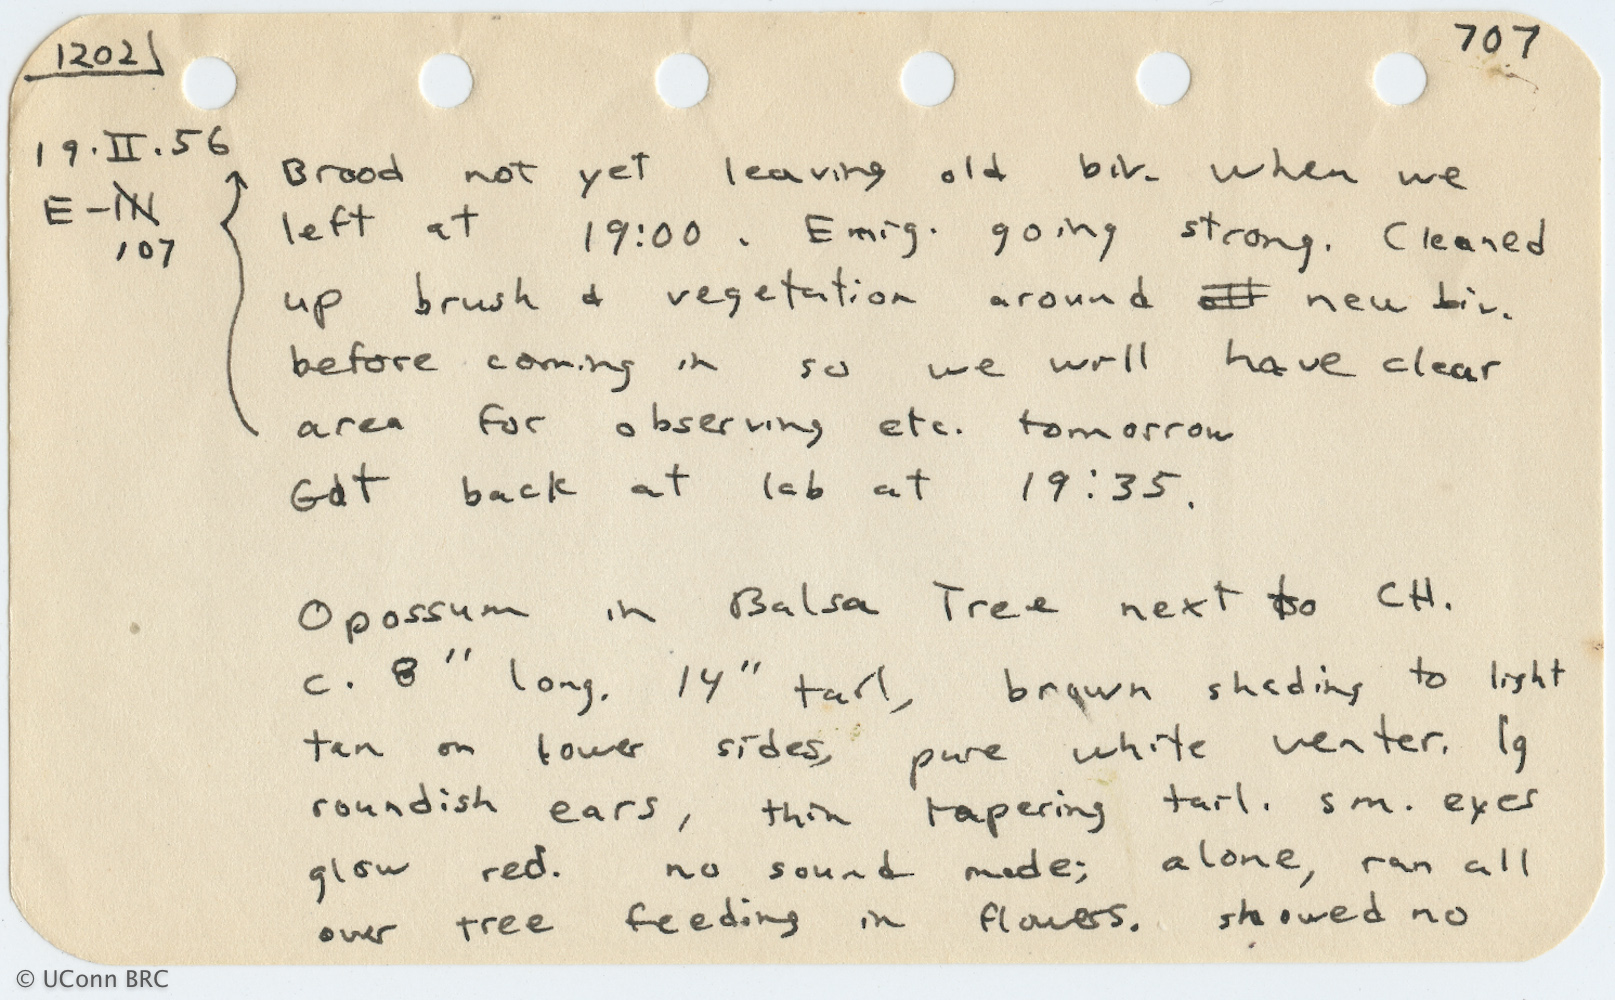 1202
707
19.II.56
E-
107
Brood not yet leaving old biv. when we
left at 19:00. Emig. going strong. Cleaned
up brush & vegetation around new biv.
before coming in so we will have clear
area for observing etc. tomorrow
Got back at lab at 19:35.
Opossum in Balsa Tree next to CH.
c. 8" long. 14" tail, brown shading to light
tan on lower sides, pure white venter. lg
roundish ears, thin tapering tail. sm. eyes
glow red. no sound made; alone, ran all
over tree feeding in flowers. showed no
© UConn BRC